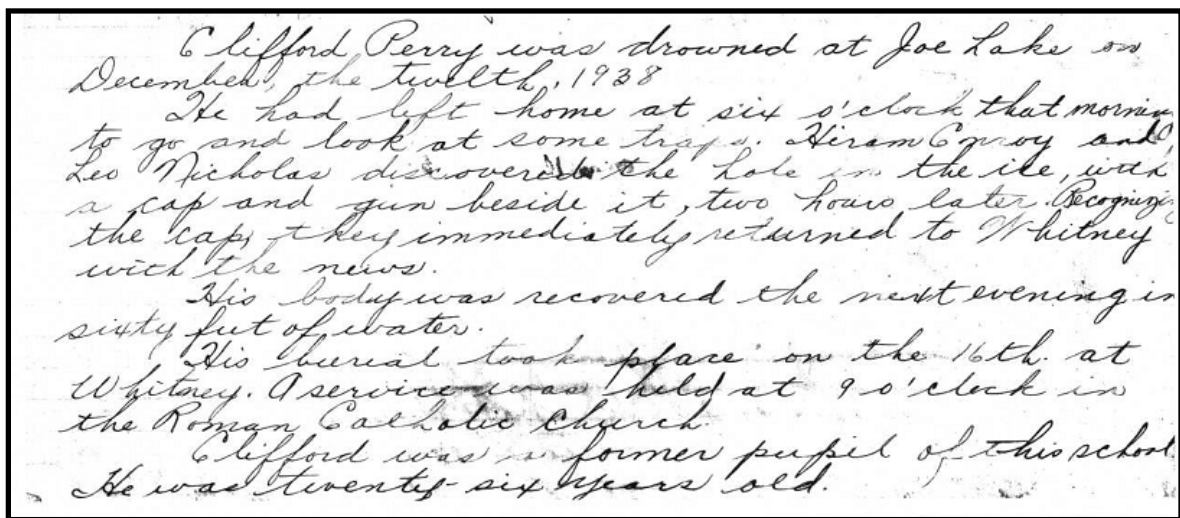 Clifford Perry was drowned at Joe Lake on
December, the twelth, 1938
He had left home at six o'clock that morning
to go and look at some traps. Hiram Enroy and
Leo Nicholas discovered the hole in the ice, with
a cap and gun beside it, two hours later. Recognizing
the cap, they immediately returned to Whitney
with the news.
His body was recovered the next evening in
sixty feet of water.
His burial took place on the 16th. at
Whitney. A service was held at 9 o'clock in
the Roman Catholic Church
Clifford was a former pupil of this school.
He was twenty-six years old.